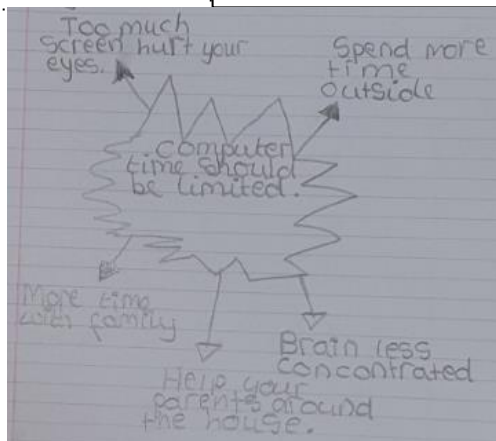 Too much
screen hurt your
eyes.
Spend more
time
outside
computer
time should
be limited.
More time
with family
Brain less
concontrated
Help your
parents around
the house.